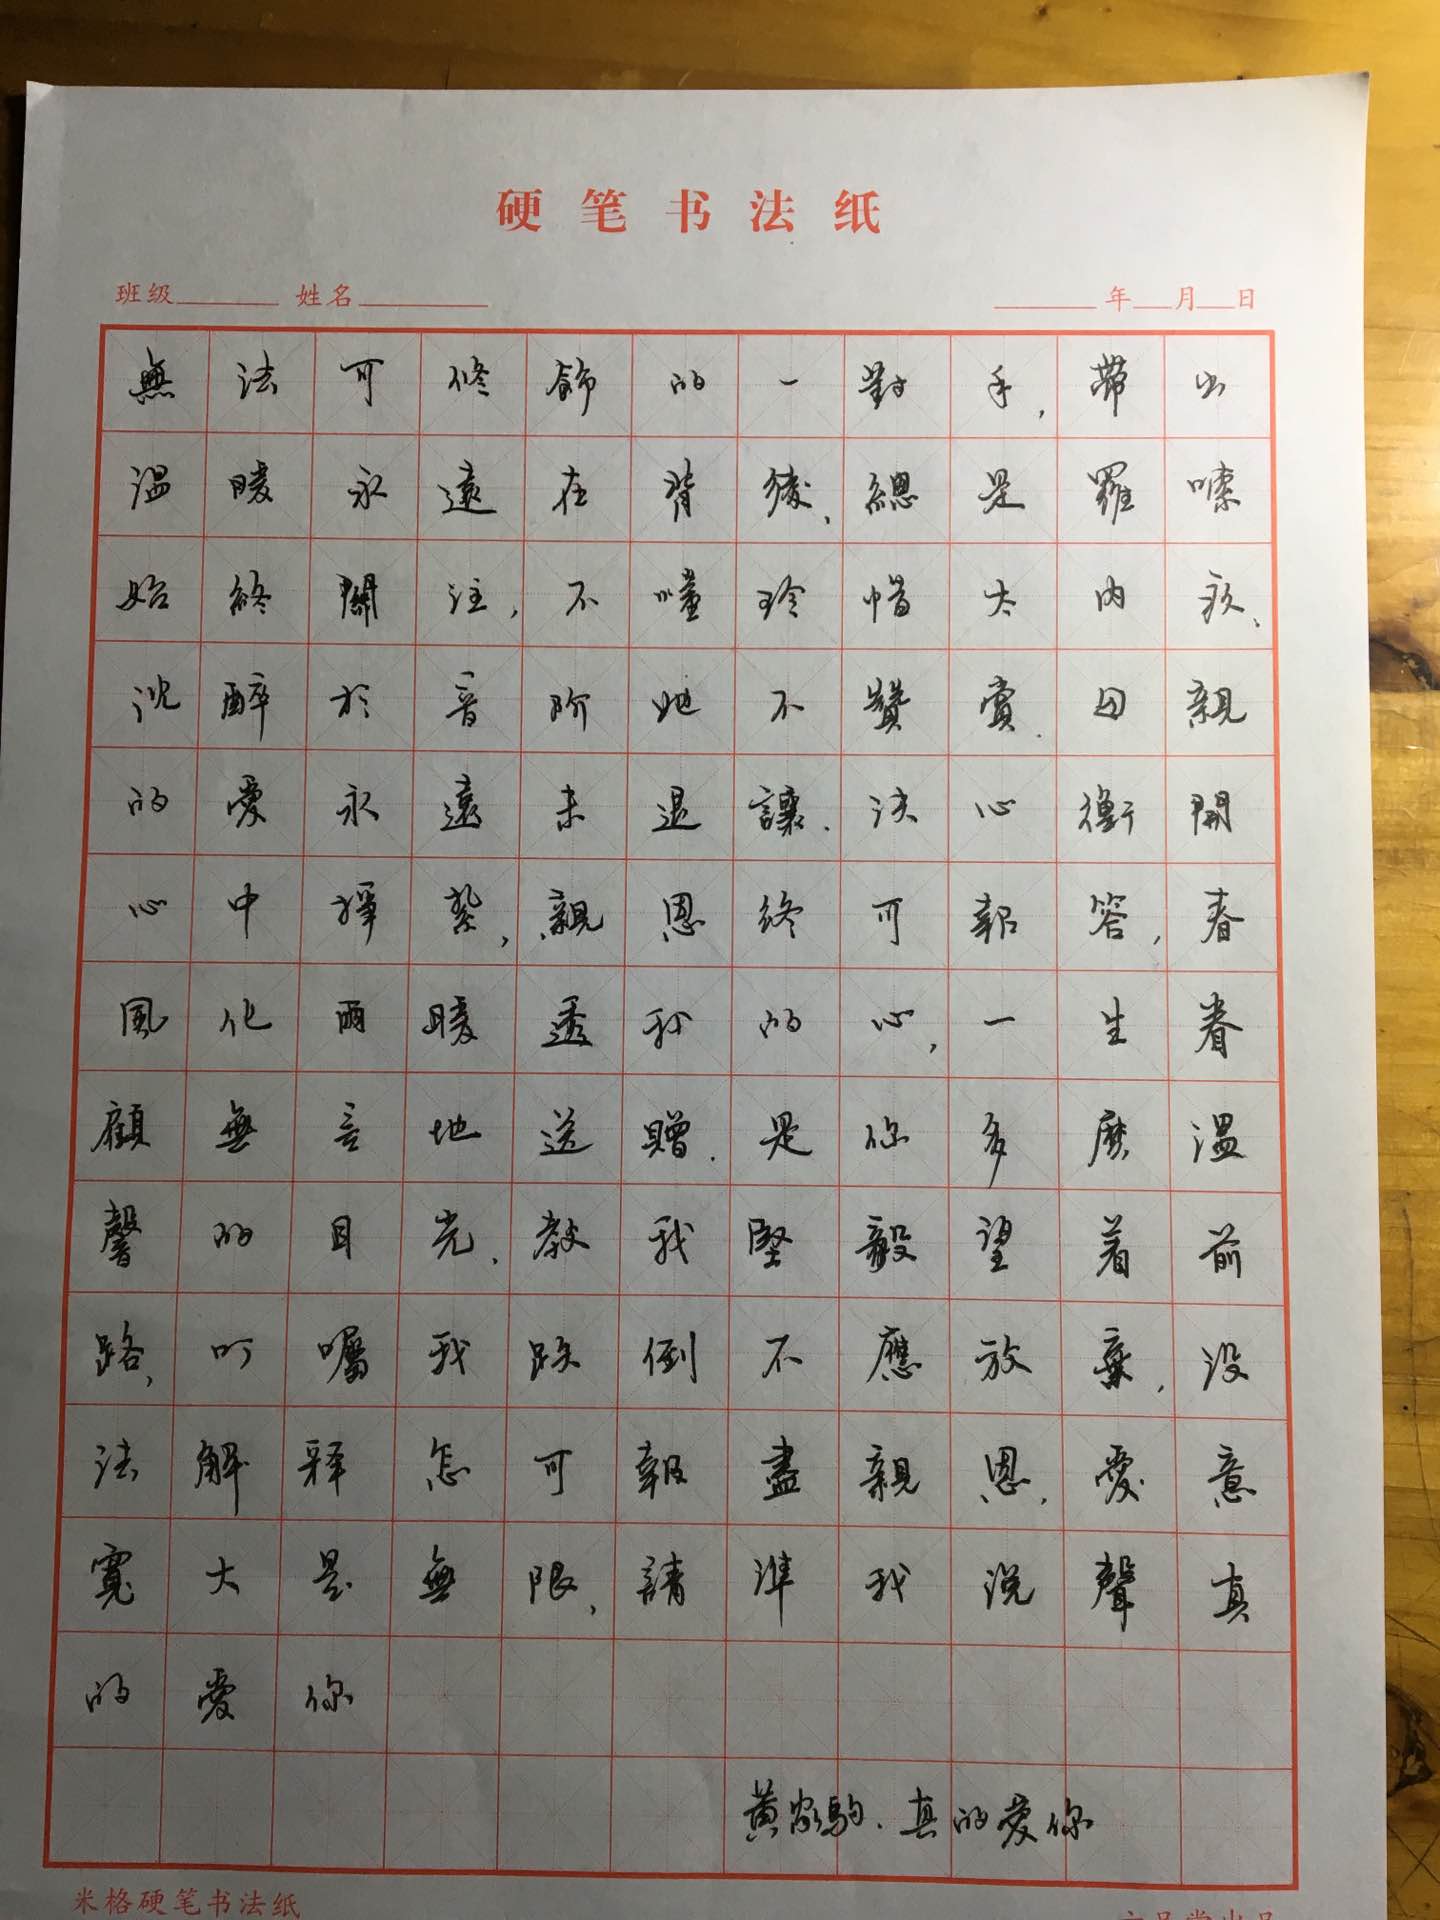 硬笔书法纸
班级 姓名 年 月 日
無法可修飾的一對手,帶出
温暖永遠在背後,總是羅嗦
始終關注,不懂珍惜太内疚、
沈醉於音阶她不贊賞.母親
的愛永遠未退讓.决心衝開
心中掙紮,親恩终可報答,春
風化雨暖透我的心,一生眷
顧無言地送贈.是你多麽温
馨的目光,教我堅毅望着前
路,叮囑我跌倒不應放棄,没
法解释怎可報盡親恩,愛意
寬大是無限,請準我说聲真
的愛你
黄家駒.真的爱你
米格硬笔书法纸